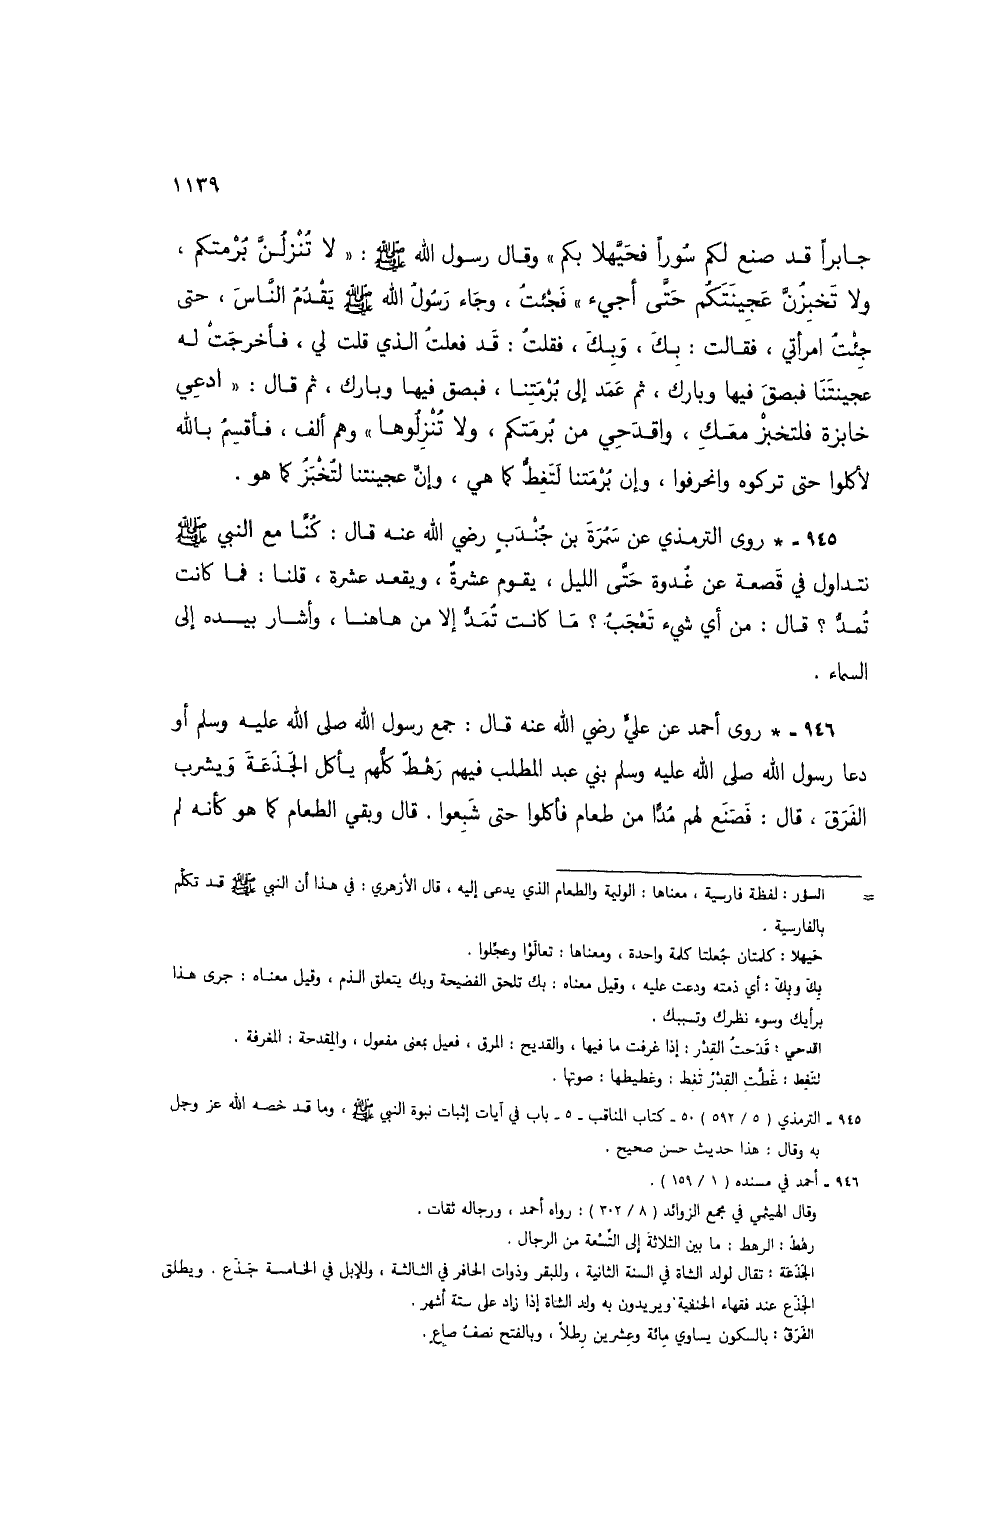 ١١٣٩
جابراً قد صنع لكم سُوراً فحَيَّهلا بكم » وقال رسول الله ﷺ : « لا تُنْزلُنَّ بُرْمتكم ،
ولا تَخبِزُنَّ عَجِينَتَكُم حَتَّى أجيء » فَجْئتُ ، وجَاء رَسُولُ الله ﷺ يَقْدُمُ النَّاسَ ، حتى
جِئْتُ امرأتي ، فقالت : بِكَ ، وَبِكَ ، فقلتُ : قَد فعلتُ الذي قلت لي ، فأخرجَتْ له
عجينتَنَا فبصقَ فيها وبارك ، ثم عَمَد إلى بُرْمَتِنا ، فبصق فيها وبارك ، ثم قال : « ادعِي
خابزة فلتخبزْ معَكِ ، واقدَحِي من بُرمَتكم ، ولا تُنْزِلُوها » وهم ألف ، فأقسِمُ بالله
لأكلوا حتى تركوه وانحرفوا ، وإن بُرْمَتنا لَتَغِطُّ كما هي ، وإنَّ عجينتنا لتُخْبَزُ كما هو .
٩٤٥ ـ * روى الترمذي عن سَمُرَةَ بن جُنْدَبٍ رضي الله عنه قال : كُنَّا مع النبي ﷺ
نتداول في قَصعة عن غُدوة حَتَّى الليل ، يقوم عشرةٌ ، ويقعد عشرة ، قلنا : فما كانت
تُمدُّ ؟ قال : من أي شيء تَعْجَبُ ؟ مَا كانت تُمَدُّ إلا من هاهنا ، وأشار بيده إلى
السماء .
٩٤٦ ـ * روى أحمد عن عليٍّ رضي الله عنه قال : جمع رسول الله صلى الله عليه وسلم أو
دعا رسول الله صلى الله عليه وسلم بني عبد المطلب فيهم رَهْطٌ كلُّهم يأكل الجَذَعَةَ وَيشرب
الفَرَقَ ، قال : فَصَنَع لهم مُدَّا من طعام فأكلوا حتى شَبِعوا . قال وبقي الطعام كما هو كأنه لم
= السؤر : لفظة فارسية ، معناها : الوليمة والطعام الذي يدعى إليه ، قال الأزهري : في هذا أن النبي ﷺ قد تكلَّم
بالفارسية .
حَيهلا : كلمتان جُعلتا كلمة واحدة ، ومعناها : تعالَوْا وعجِّلوا .
بِكَ وبِكَ : أي ذمته ودعت عليه ، وقيل معناه : بك تلحق الفضيحة وبك يتعلق الذم ، وقيل معناه : جرى هذا
برأيك وسوء نظرك وتسببك .
اقدحي : قَدَحتُ القِدْر : إذا غرفت ما فيها ، والقديح : المرق ، فعيل بمعنى مفعول ، والمِقدحة : المغرفة .
لتَغِط : غَطَّتِ القِدْرُ تَغِط : وغطيطها : صوتها .
٩٤٥ ـ الترمذي ( ٥ / ٥٩٢ ) ٥٠ ـ كتاب المناقب ـ ٥ ـ باب في آيات إثبات نبوة النبي ﷺ ، وما قد خصه الله عز وجل
به وقال : هذا حديث حسن صحيح .
٩٤٦ ـ أحمد في مسنده ( ١ / ١٥٩ ) .
وقال الهيثمي في مجمع الزوائد ( ٨ / ٣٠٢ ) : رواه أحمد ، ورجاله ثقات .
رهْطٌ : الرهط : ما بين الثلاثة إلى التِّسْعة من الرجال .
الجَذَعَة : تقال لولد الشاة في السنة الثانية ، وللبقر وذوات الحافر في الثالثة ، وللإبل في الخامسة جَذَع . ويطلق
الجَذَع عند فقهاء الحنفية ويريدون به ولد الشاة إذا زاد على ستة أشهر .
الفَرَق : بالسكون يساوي مائة وعشرين رِطلاً ، وبالفتح نصفُ صاعٍ .